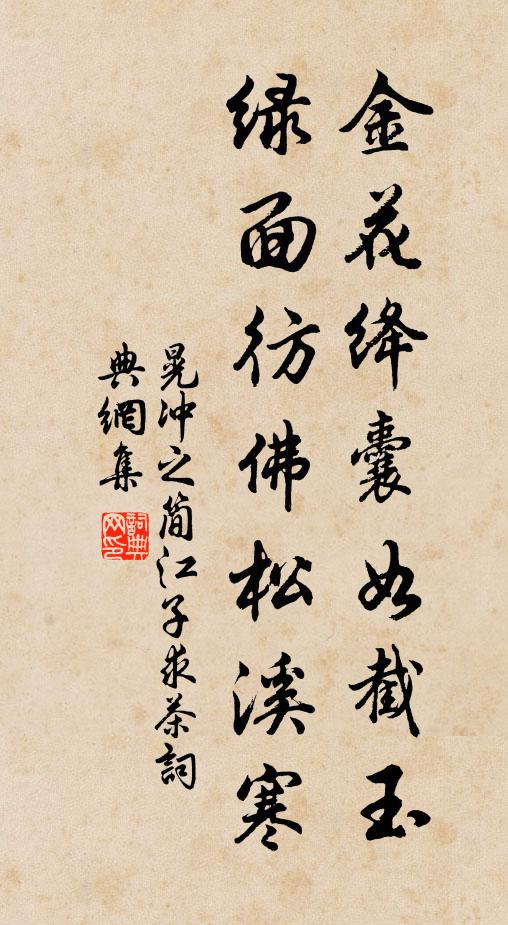 金花绛囊如截玉
绿面彷佛松溪寒
晁冲之简江子求茶詞
典網集
詞典网印